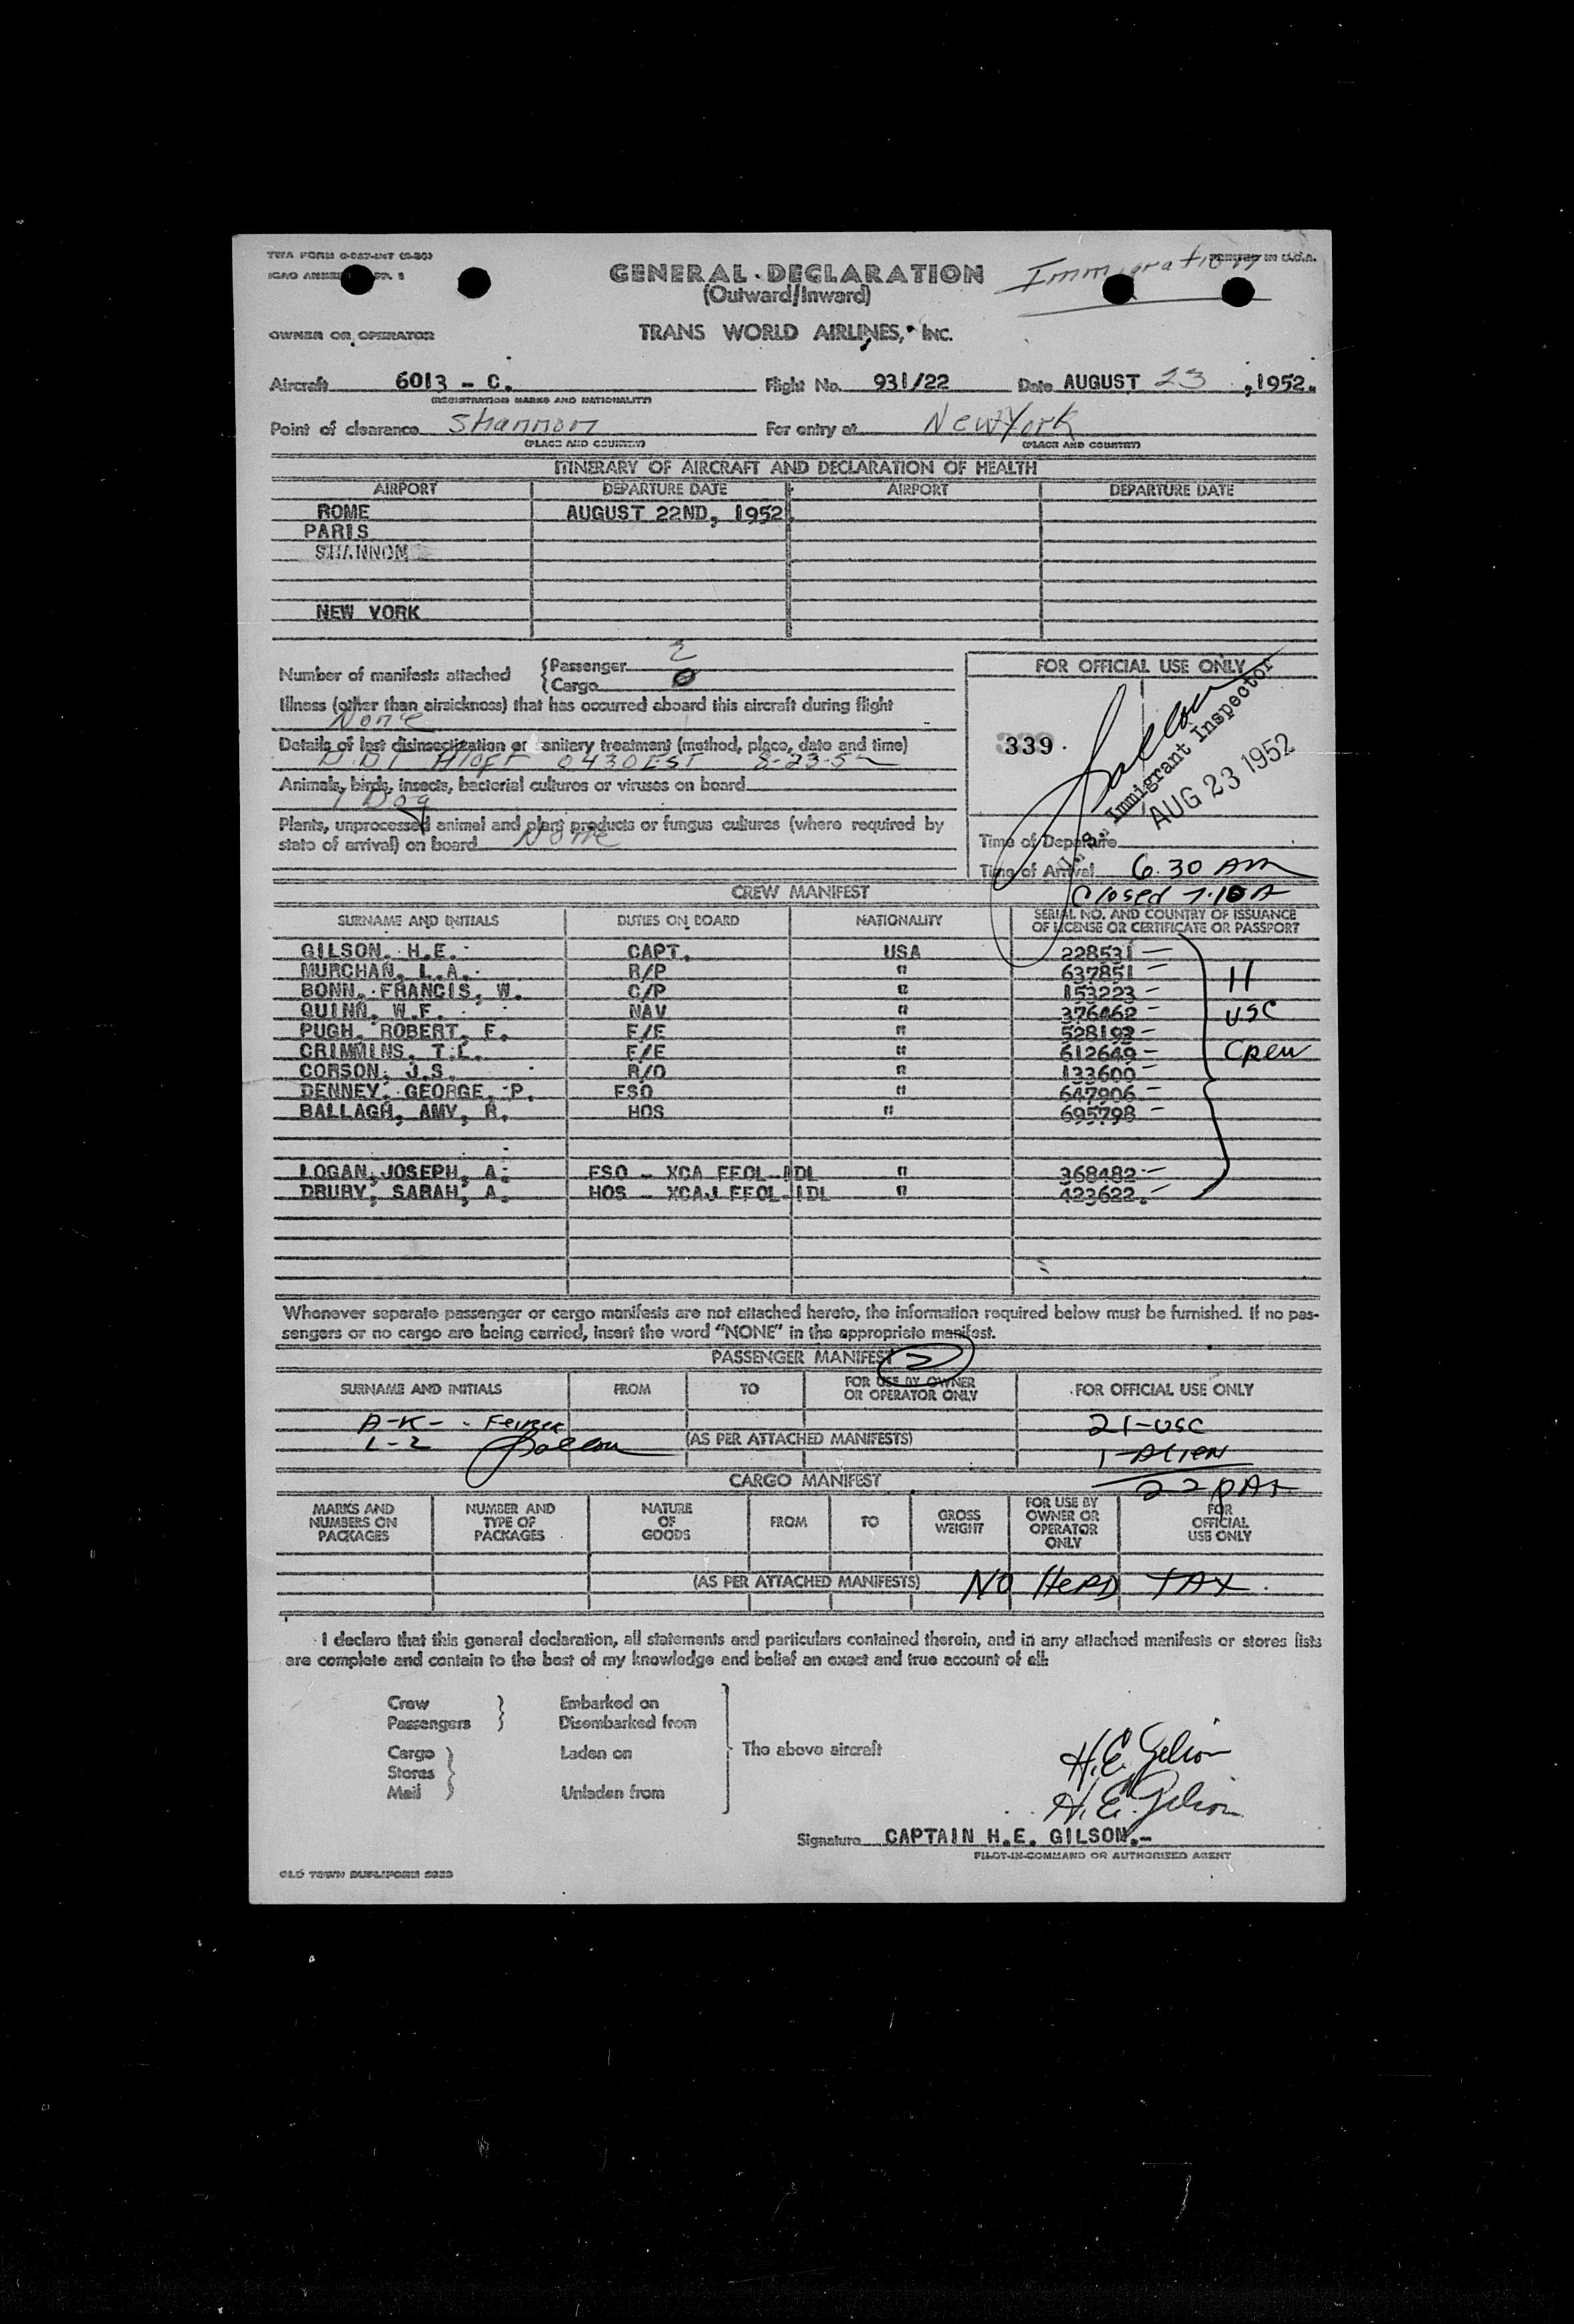 TWA FORM O-037-INT
PRINTED IN U.S.A.
Immigration
ICAO ANNEX
GENERAL DECLARATION
(Outward/Inward)
OWNER OR OPERATOR TRANS WORLD AIRLINES, INC.
Aircraft 6013 - C. Flight No. 931/22 Date AUGUST 23, 1952.
(REGISTRATION MARKS AND NATIONALITY)
Point of clearance Shannon For entry at New York
(PLACE AND COUNTRY) (PLACE AND COUNTRY)
ITINERARY OF AIRCRAFT AND DECLARATION OF HEALTH
AIRPORT DEPARTURE DATE AIRPORT DEPARTURE DATE
ROME AUGUST 22ND, 1952.
PARIS
SHANNON
NEW YORK
Number of manifests attached {Passenger 2
{Cargo 0
Illness (other than airsickness) that has occurred aboard this aircraft during flight
None
Details of last disinsectization or sanitary treatment (method, place, date and time)
D.D.T Aloft 0430EST 8-23-52
Animals, birds, insects, bacterial cultures or viruses on board
1 Dog
Plants, unprocessed animal and plant products or fungus cultures (where required by
state of arrival) on board None
FOR OFFICIAL USE ONLY
339.
U.S. Immigrant Inspector
AUG 23 1952
Time of Departure
Time of Arrival 6.30 AM
Closed 7.10 A
CREW MANIFEST
SURNAME AND INITIALS DUTIES ON BOARD NATIONALITY SERIAL NO. AND COUNTRY OF ISSUANCE
OF LICENSE OR CERTIFICATE OR PASSPORT
GILSON, H.E. CAPT. USA 228531
MURCHAN, L.A. R/P " 637851
BONN, FRANCIS, W. C/P " 153223
QUINN, W.F. NAV " 376462
PUGH, ROBERT, F. F/E " 528192
CRIMMINS, T.L. F/E " 612649
CORSON, J.S. R/O " 133600
DENNEY, GEORGE, P. FSO " 647906
BALLAGH, AMY, R. HOS " 695798
LOGAN, JOSEPH, A. FSO - XCA FFOL-IDL " 368482
DRURY, SARAH, A. HOS - XCAJ FFOL-IDL " 423622.
11
USC
Crew
Whenever separate passenger or cargo manifests are not attached hereto, the information required below must be furnished. If no pas-
sengers or no cargo are being carried, insert the word "NONE" in the appropriate manifest.
PASSENGER MANIFEST 2
SURNAME AND INITIALS FROM TO FOR USE BY OWNER
OR OPERATOR ONLY FOR OFFICIAL USE ONLY
A-K- 21-USC
L-Z (AS PER ATTACHED MANIFESTS) 1-ALIEN
CARGO MANIFEST 22 PAX
MARKS AND
NUMBERS ON
PACKAGES NUMBER AND
TYPE OF
PACKAGES NATURE
OF
GOODS FROM TO GROSS
WEIGHT FOR USE BY
OWNER OR
OPERATOR
ONLY FOR
OFFICIAL
USE ONLY
(AS PER ATTACHED MANIFESTS) NO HEAD TAX.
I declare that this general declaration, all statements and particulars contained therein, and in any attached manifests or stores lists
are complete and contain to the best of my knowledge and belief an exact and true account of all:
Crew Embarked on
Passengers Disembarked from
Cargo Laden on The above aircraft
Stores
Mail Unladen from
H.E. Gilson
H.E. Gilson
Signature CAPTAIN H.E. GILSON.-
PILOT-IN-COMMAND OR AUTHORIZED AGENT
OLD TOWN DUPLIFORM